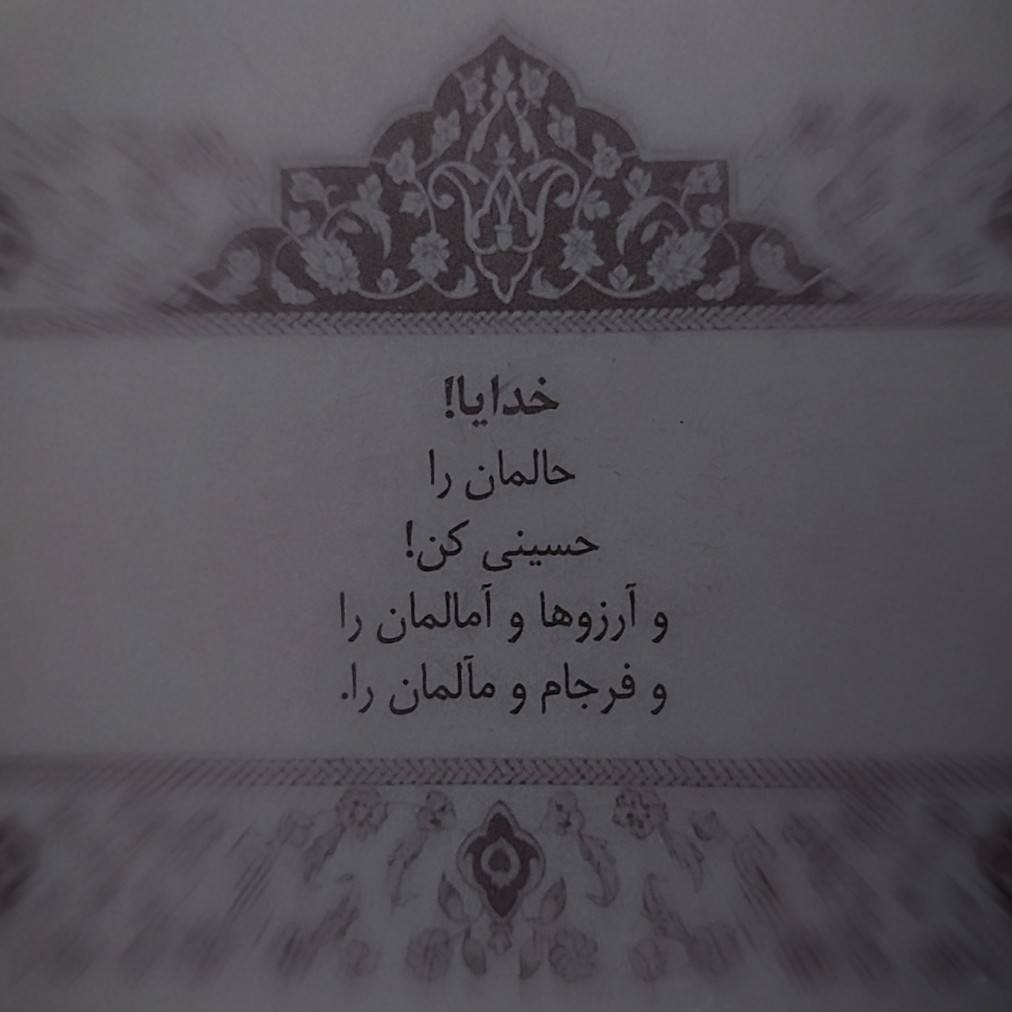 خدایا!
حالمان را
حسینی کن!
و آرزوها و آمالمان را
و فرجام و مآلمان را.